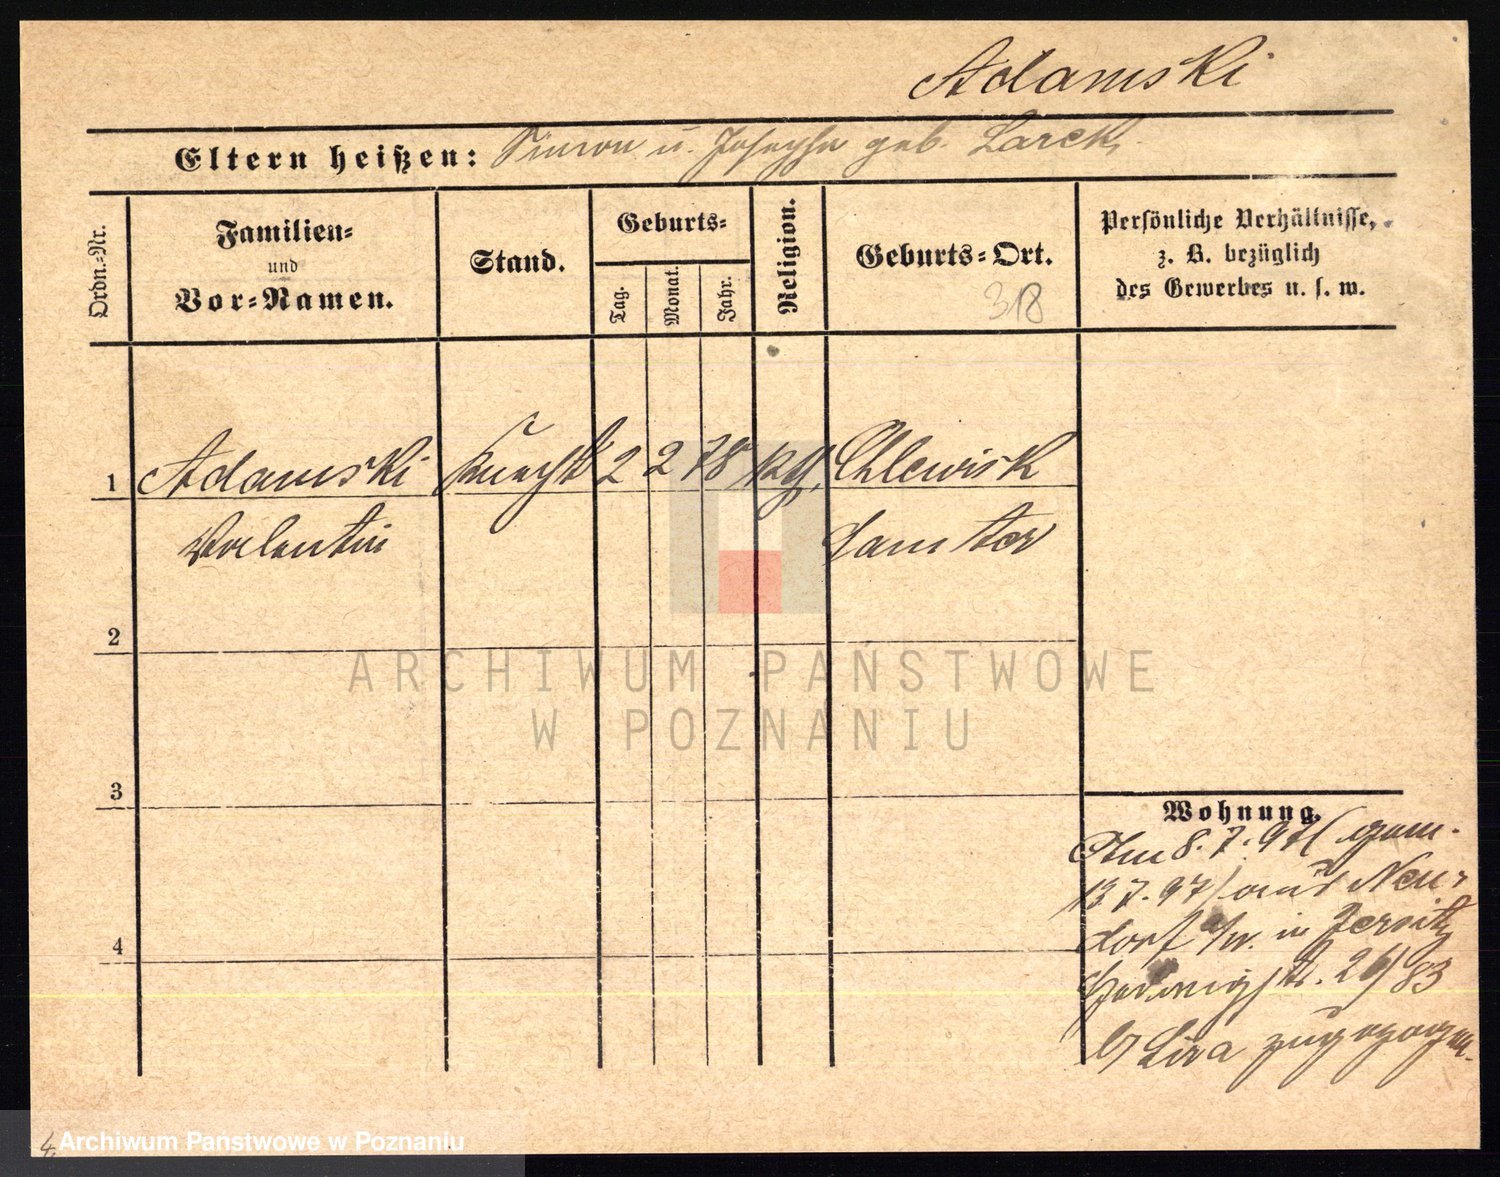 Adamski
Eltern heißen: Simon u. Josepha geb. Larek
Ordn.-Nr.
Familien-
und
Vor-Namen.
Stand.
Geburts-
Tag.
Monat.
Jahr.
Religion.
Geburts-Ort.
318
Persönliche Verhältnisse,
z. B. bezüglich
des Gewerbes u. s. w.
1 Adamski Knecht 2 2 78 kth. Chlewisk
Valentin Samter
2
3
4
Wohnung.
Am 8.7.97 (gem.
13.7.97) aus Neu-
dorf in Jersitz
Hedwigstr. 26/83
b/ Lira zugezogen.
ARCHIWUM PAŃSTWOWE
W POZNANIU
4.
Archiwum Państwowe w Poznaniu